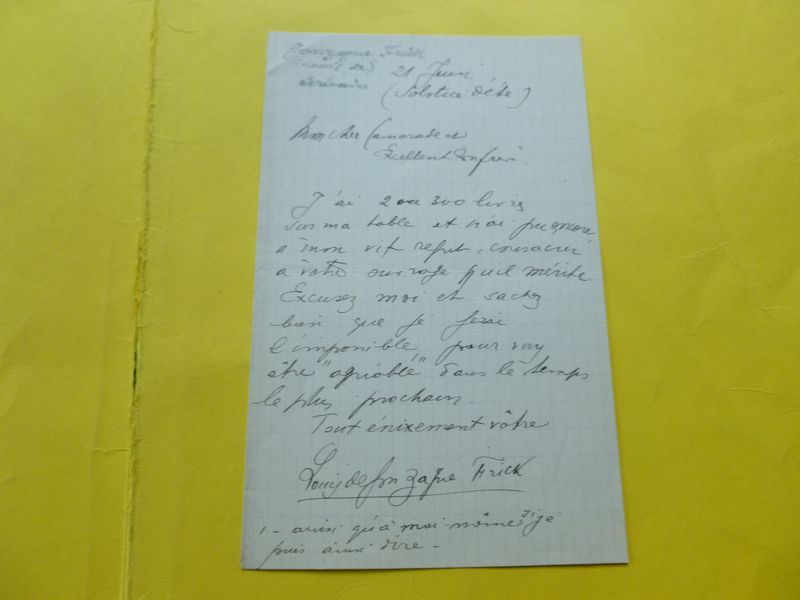 Gonzague Frick
(Louis de)
écrivain
21 Juin
(Solstice d'été)
Mon cher Camarade et
Excellent Confrère.
J'ai 2 ou 300 livres
sur ma table et n'ai pu encore
à mon vif regret, consacrer
à votre ouvrage qu'il mérite.
Excusez moi et sachez
bien que je ferai
l'impossible pour vous
être "agréable" dans le temps
le plus prochain.
Tout énixement vôtre
Louis de Gonzague Frick
1 - ainsi qu'à moi-même si je
puis ainsi dire -